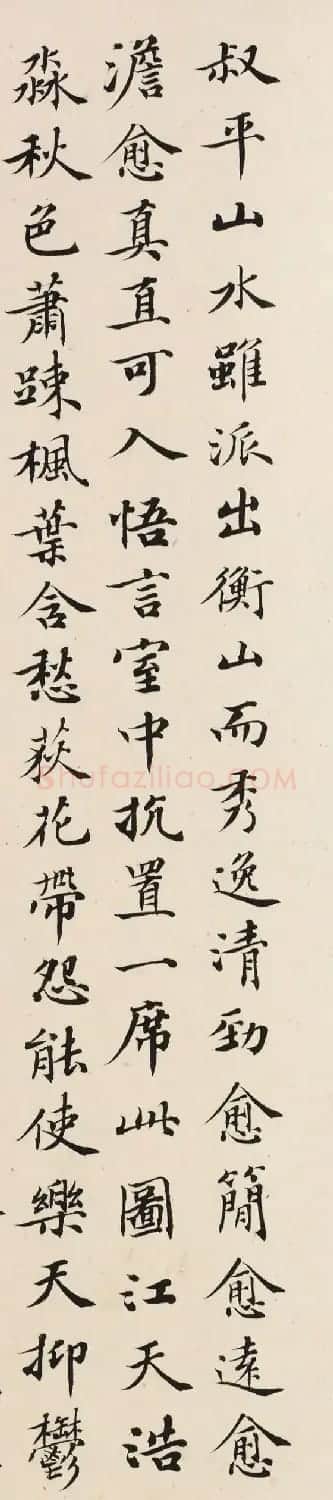 叔平山水雖派出衡山而秀逸清勁愈簡愈遠愈
澹愈真直可入悟言室中抗置一席此圖江天浩
淼秋色蕭踈楓葉含愁荻花帶怨能使樂天抑鬱
shufaziliao.COM